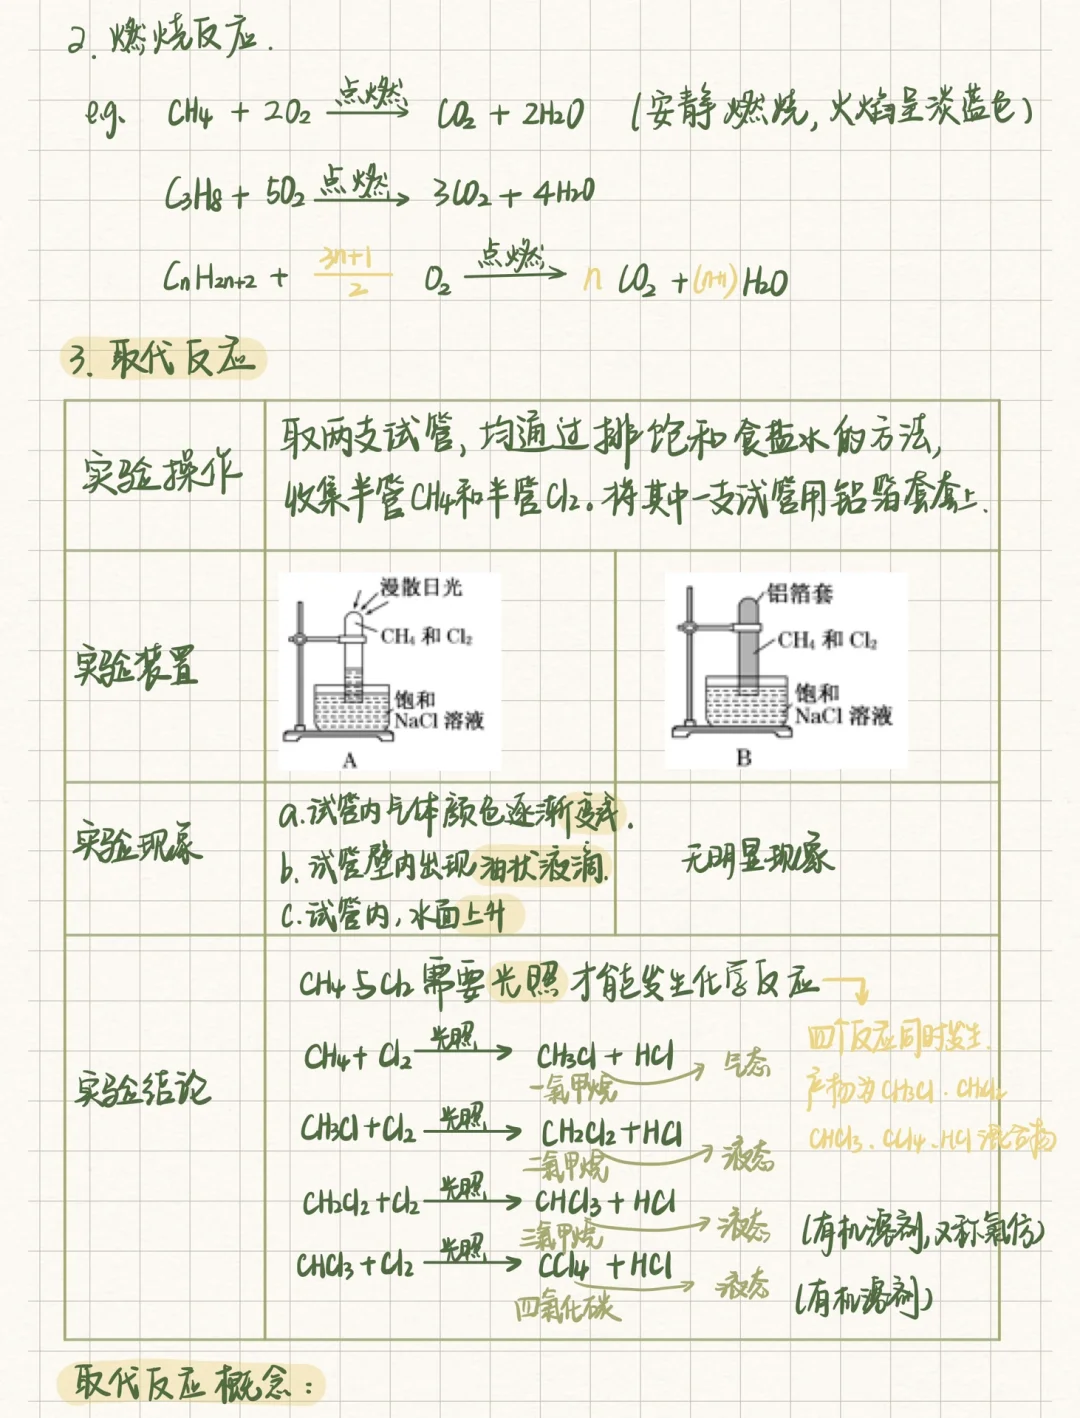 2. 燃烧反应.
e.g. CH4 + 2O2 点燃→ CO2 + 2H2O (安静燃烧, 火焰呈淡蓝色)
C3H8 + 5O2 点燃→ 3CO2 + 4H2O
CnH2n+2 + (3n+1)/2 O2 点燃→ n CO2 + (n+1) H2O
3. 取代反应
实验操作
取两支试管, 均通过排饱和食盐水的方法,
收集半管CH4和半管Cl2。将其中一支试管用铝箔套套上.
实验装置
漫散日光
CH4 和 Cl2
饱和
NaCl 溶液
A
铝箔套
CH4 和 Cl2
饱和
NaCl 溶液
B
实验现象
a.试管内气体颜色逐渐变浅.
b. 试管壁内出现油状液滴.
c.试管内, 水面上升
无明显现象
实验结论
CH4与Cl2需要光照才能发生化学反应→
四个反应同时发生.
产物为CH3Cl、CH2Cl2
CHCl3、CCl4、HCl混合物
CH4 + Cl2 光照→ CH3Cl + HCl
一氯甲烷 → 气态
CH3Cl + Cl2 光照→ CH2Cl2 + HCl
二氯甲烷 → 液态
CH2Cl2 + Cl2 光照→ CHCl3 + HCl
三氯甲烷 → 液态 (有机溶剂, 又称氯仿)
CHCl3 + Cl2 光照→ CCl4 + HCl
四氯化碳 → 液态 (有机溶剂)
取代反应概念: